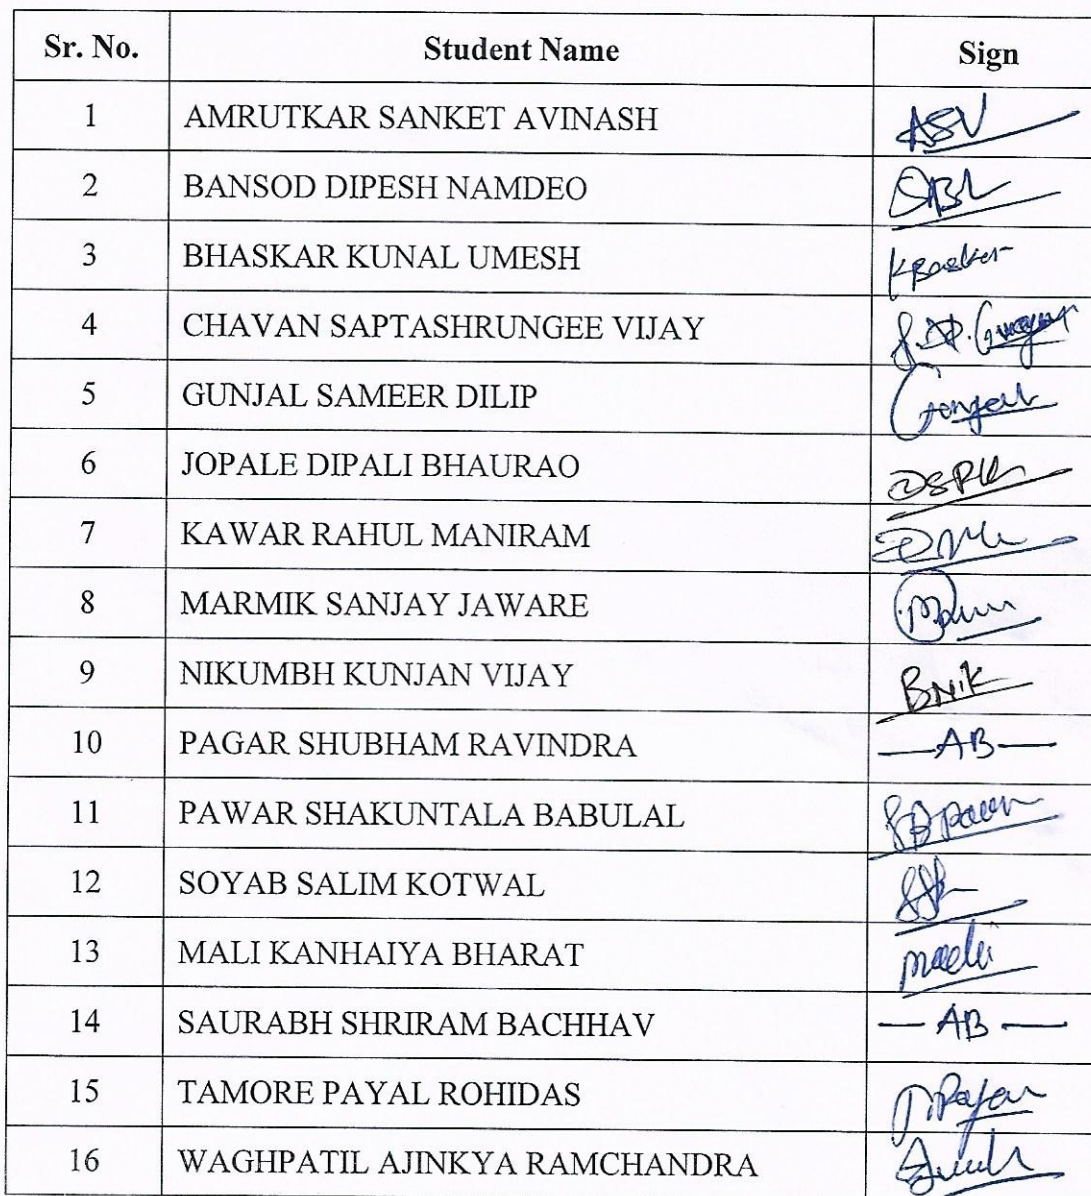 Sr. No. Student Name Sign
1 AMRUTKAR SANKET AVINASH ASV
2 BANSOD DIPESH NAMDEO
3 BHASKAR KUNAL UMESH
4 CHAVAN SAPTASHRUNGEE VIJAY
5 GUNJAL SAMEER DILIP
6 JOPALE DIPALI BHAURAO
7 KAWAR RAHUL MANIRAM
8 MARMIK SANJAY JAWARE
9 NIKUMBH KUNJAN VIJAY BNik
10 PAGAR SHUBHAM RAVINDRA —AB—
11 PAWAR SHAKUNTALA BABULAL
12 SOYAB SALIM KOTWAL
13 MALI KANHAIYA BHARAT
14 SAURABH SHRIRAM BACHHAV — AB —
15 TAMORE PAYAL ROHIDAS
16 WAGHPATIL AJINKYA RAMCHANDRA